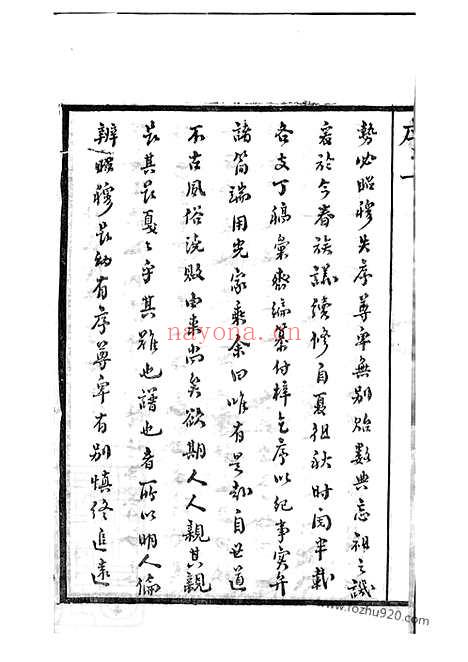 序 二
勢必昭穆失序尊卑無別貽數典忘祖之譏
爰於今春族議續修自夏徂秋時閱半載
各支丁稿彙齊編纂付梓乞序以紀事實弁
諸簡端用光家乘余曰唯有是哉自世道
不古風俗澆敗由來尚矣欲期人人親其親
長其長戛戛乎其難也譜也者所以明人倫
辨昭穆長幼有序尊卑有別慎終追遠
nayona.cn
www.rozhu920.com